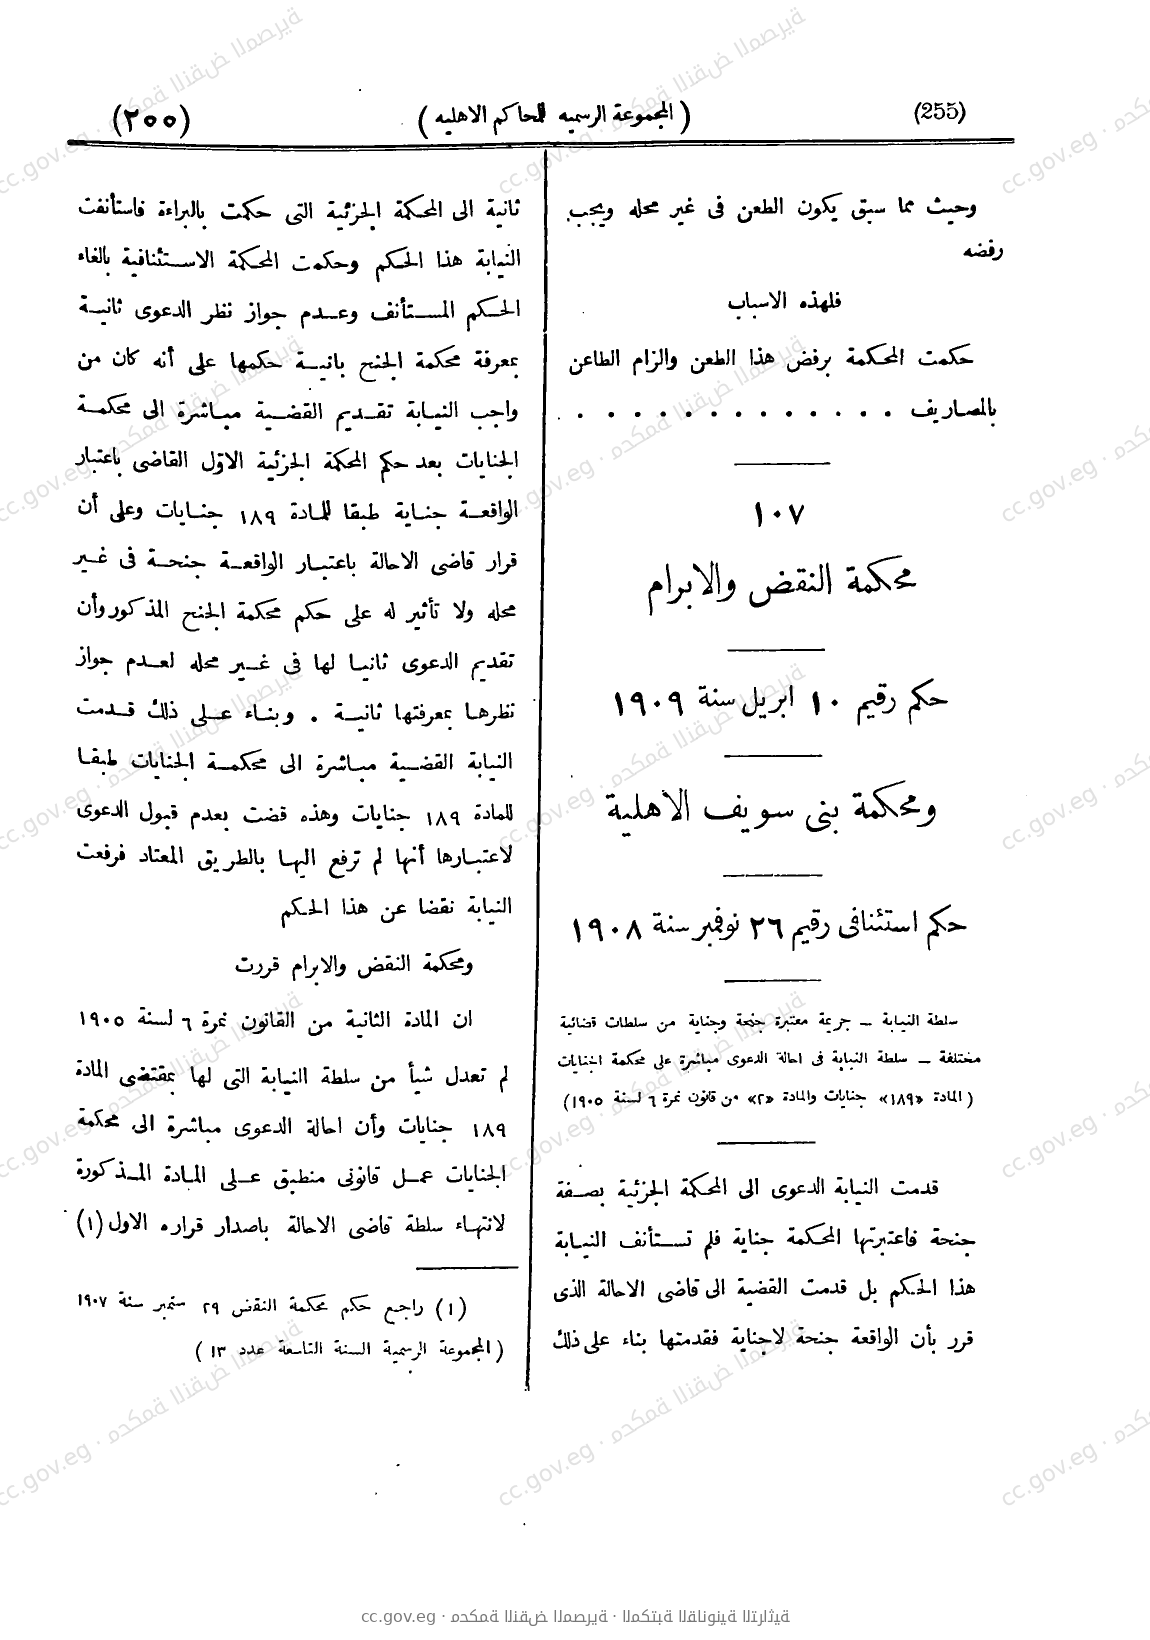 (255)
( المجموعة الرسميه للحاكم الاهليه )
(٢٥٥)
وحيث مما سبق يكون الطعن فى غير محله ويجب
رفضه
فلهذه الاسباب
حكمت المحكمة برفض هذا الطعن والزام الطاعن
بالمصاريف . . . . . . . . . . . . .
١٠٧
محكمة النقض والابرام
حكم رقيم ١٠ ابريل سنة ١٩٠٩
ومحكمة بنى سويف الاهلية
حكم استئنافى رقيم ٢٦ نوفمبر سنة ١٩٠٨
سلطة النيابة – جريمة معتبرة جنحة وجناية من سلطات قضائية
مختلفة – سلطة النيابة فى احالة الدعوى مباشرة على محكمة الجنايات
( المادة «١٨٩» جنايات والمادة «٢» من قانون نمرة ٦ لسنة ١٩٠٥)
قدمت النيابة الدعوى الى المحكمة الجزئية بصفة
جنحة فاعتبرتها المحكمة جناية فلم تستأنف النيابة
هذا الحكم بل قدمت القضية الى قاضى الاحالة الذى
قرر بأن الواقعة جنحة لاجناية فقدمتها بناء على ذلك
ثانية الى المحكمة الجزئية التى حكمت بالبراءة فاستأنفت
النيابة هذا الحكم وحكمت المحكمة الاستئنافية بالغاء
الحكم المستأنف وعدم جواز نظر الدعوى ثانية
بمعرفة محكمة الجنح بانية حكمها على أنه كان من
واجب النيابة تقديم القضية مباشرة الى محكمة
الجنايات بعد حكم المحكمة الجزئية الاوّل القاضى باعتبار
الواقعة جناية طبقا للمادة ١٨٩ جنايات وعلى أن
قرار قاضى الاحالة باعتبار الواقعة جنحة فى غير
محله ولا تأثير له على حكم محكمة الجنح المذكور وأن
تقديم الدعوى ثانيا لها فى غير محله لعدم جواز
نظرها بمعرفتها ثانية . وبناء على ذلك قدمت
النيابة القضية مباشرة الى محكمة الجنايات طبقا
للمادة ١٨٩ جنايات وهذه قضت بعدم قبول الدعوى
لاعتبارها أنها لم ترفع اليها بالطريق المعتاد فرفعت
النيابة نقضا عن هذا الحكم
ومحكمة النقض والابرام قررت
ان المادة الثانية من القانون نمرة ٦ لسنة ١٩٠٥
لم تعدل شيأ من سلطة النيابة التى لها بمقتضى المادة
١٨٩ جنايات وأن احالة الدعوى مباشرة الى محكمة
الجنايات عمل قانونى منطبق على المادة المذكورة
لانتهاء سلطة قاضى الاحالة باصدار قراره الاول (١)
(١) راجع حكم محكمة النقض ٢٩ ستمبر سنة ١٩٠٧
( المجموعة الرسمية السنة التاسعة عدد ١٣ )
cc.gov.eg · محكمة النقض المصرية · المكتبة القانونية التراثية